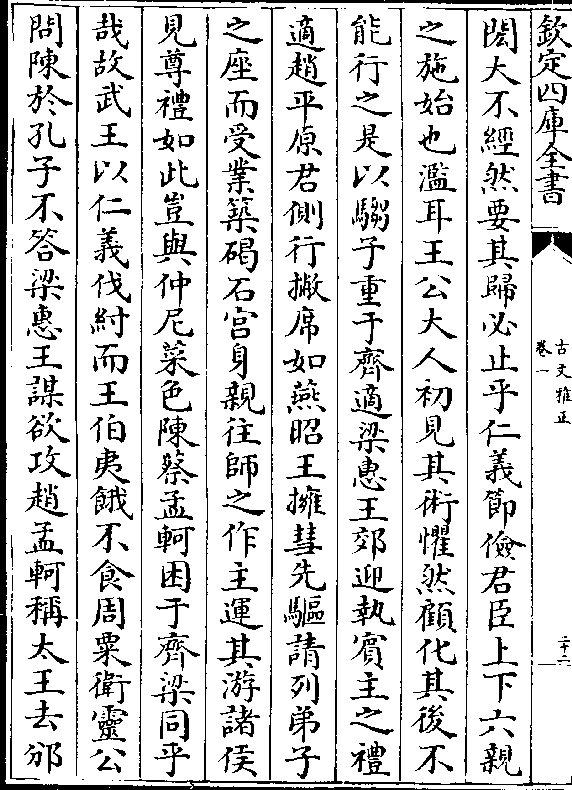 欽定四庫全書
古文雅正
卷一
二十二
閎大不經然要其歸必止乎仁義節儉君臣上下六親
之施始也濫耳王公大人初見其術懼然顧化其後不
能行之是以騶子重于齊適梁惠王郊迎執賓主之禮
適趙平原君側行撇席如燕昭王擁彗先驅請列弟子
之座而受業築碣石宫身親往師之作主運其游諸侯
見尊禮如此豈與仲尼菜色陳蔡孟軻困于齊梁同乎
哉故武王以仁義伐紂而王伯夷餓不食周粟衛靈公
問陳於孔子不答梁惠王謀欲攻趙孟軻稱太王去邠